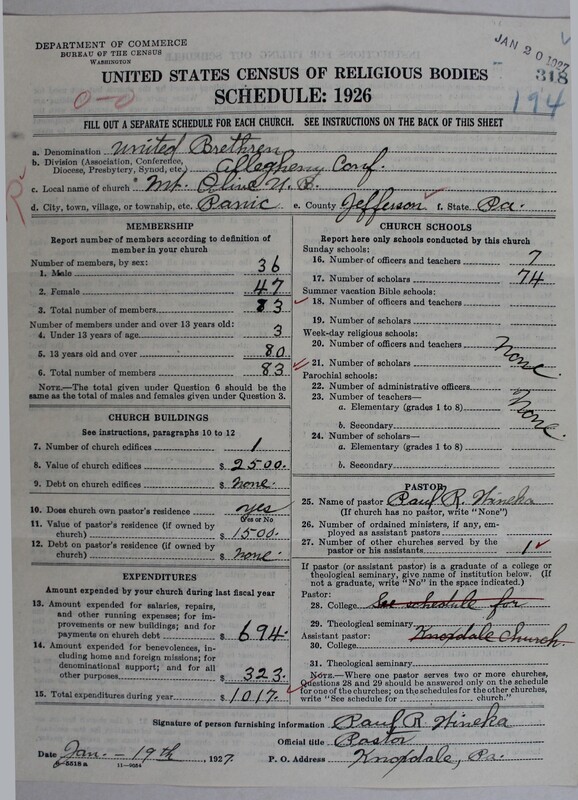 DEPARTMENT OF COMMERCE
BUREAU OF THE CENSUS
WASHINGTON
JAN 20 1927
318
194
0-0
UNITED STATES CENSUS OF RELIGIOUS BODIES
SCHEDULE: 1926
FILL OUT A SEPARATE SCHEDULE FOR EACH CHURCH. SEE INSTRUCTIONS ON THE BACK OF THIS SHEET
a. Denomination United Brethren
b. Division (Association, Conference, Diocese, Presbytery, Synod, etc.) Allegheny Conf.
c. Local name of church Mt. Olive U. B.
d. City, town, village, or township, etc. Panic e. County Jefferson f. State Pa.
MEMBERSHIP
Report number of members according to definition of
member in your church
Number of members, by sex:
1. Male 36
2. Female 47
3. Total number of members 83
Number of members under and over 13 years old:
4. Under 13 years of age 3
5. 13 years old and over 80
6. Total number of members 83
NOTE.—The total given under Question 6 should be
same as the total of males and females given under Question 3.
CHURCH BUILDINGS
See instructions, paragraphs 10 to 12
7. Number of church edifices 1
8. Value of church edifices $ 2500.
9. Debt on church edifices $ none.
10. Does church own pastor's residence? yes
(Yes or No)
11. Value of pastor's residence (if owned by
church) $ 1500.
12. Debt on pastor's residence (if owned by
church) $ none.
EXPENDITURES
Amount expended by your church during last fiscal year
13. Amount expended for salaries, repairs,
and other running expenses; for im-
provements or new buildings; and for
payments on church debt $ 694.
14. Amount expended for benevolences, in-
cluding home and foreign missions; for
denominational support; and for all
other purposes $ 323.
15. Total expenditures during year $ 1017.
CHURCH SCHOOLS
Report here only schools conducted by this church
Sunday schools:
16. Number of officers and teachers 7
17. Number of scholars 74
Summer vacation Bible schools:
18. Number of officers and teachers
19. Number of scholars
Week-day religious schools:
20. Number of officers and teachers
21. Number of scholars None.
Parochial schools:
22. Number of administrative officers
23. Number of teachers—
a. Elementary (grades 1 to 8) None.
b. Secondary
24. Number of scholars—
a. Elementary (grades 1 to 8)
b. Secondary
PASTOR
25. Name of pastor Paul R. Wineka
(If church has no pastor, write "None")
26. Number of ordained ministers, if any, em-
ployed as assistant pastors
27. Number of other churches served by the
pastor or his assistants 1
If pastor (or assistant pastor) is a graduate of a college or
theological seminary, give name of institution below. (If
not a graduate, write "No" in the space indicated.)
Pastor:
28. College See schedule for
29. Theological seminary
Assistant pastor: Knoxdale Church.
30. College
31. Theological seminary
NOTE.—Where one pastor serves two or more churches,
Questions 28 and 29 should be answered only on the schedule
for one of the churches; on the schedules for the other churches,
write "See schedule for ____ church."
Signature of person furnishing information Paul R Wineka
Official title Pastor
Date Jan. - 19th, 1927. P. O. Address Knoxdale, Pa.
11—9084